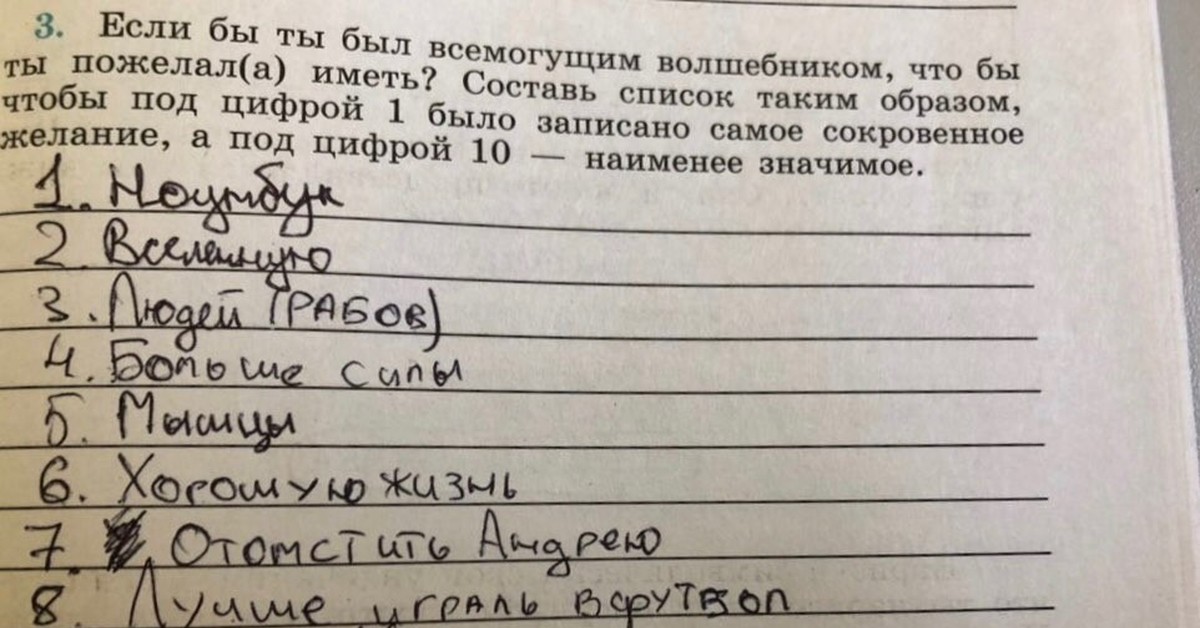 3. Если бы ты был всемогущим волшебником, что бы
ты пожелал(а) иметь? Составь список таким образом,
чтобы под цифрой 1 было записано самое сокровенное
желание, а под цифрой 10 — наименее значимое.
1. Ноутбук
2. Вселенную
3. Людей (РАБОВ)
4. Больше силы
5. Мышцы
6. Хорошую жизнь
7. Отомстить Андрею
8. Лучше играль в футбол